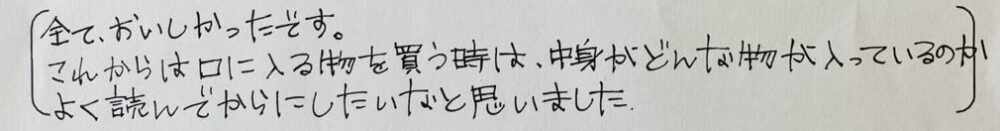 全て、おいしかったです。
これからは口に入る物を買う時は、中身がどんな物が入っているのか
よく読んでからにしたいなと思いました.